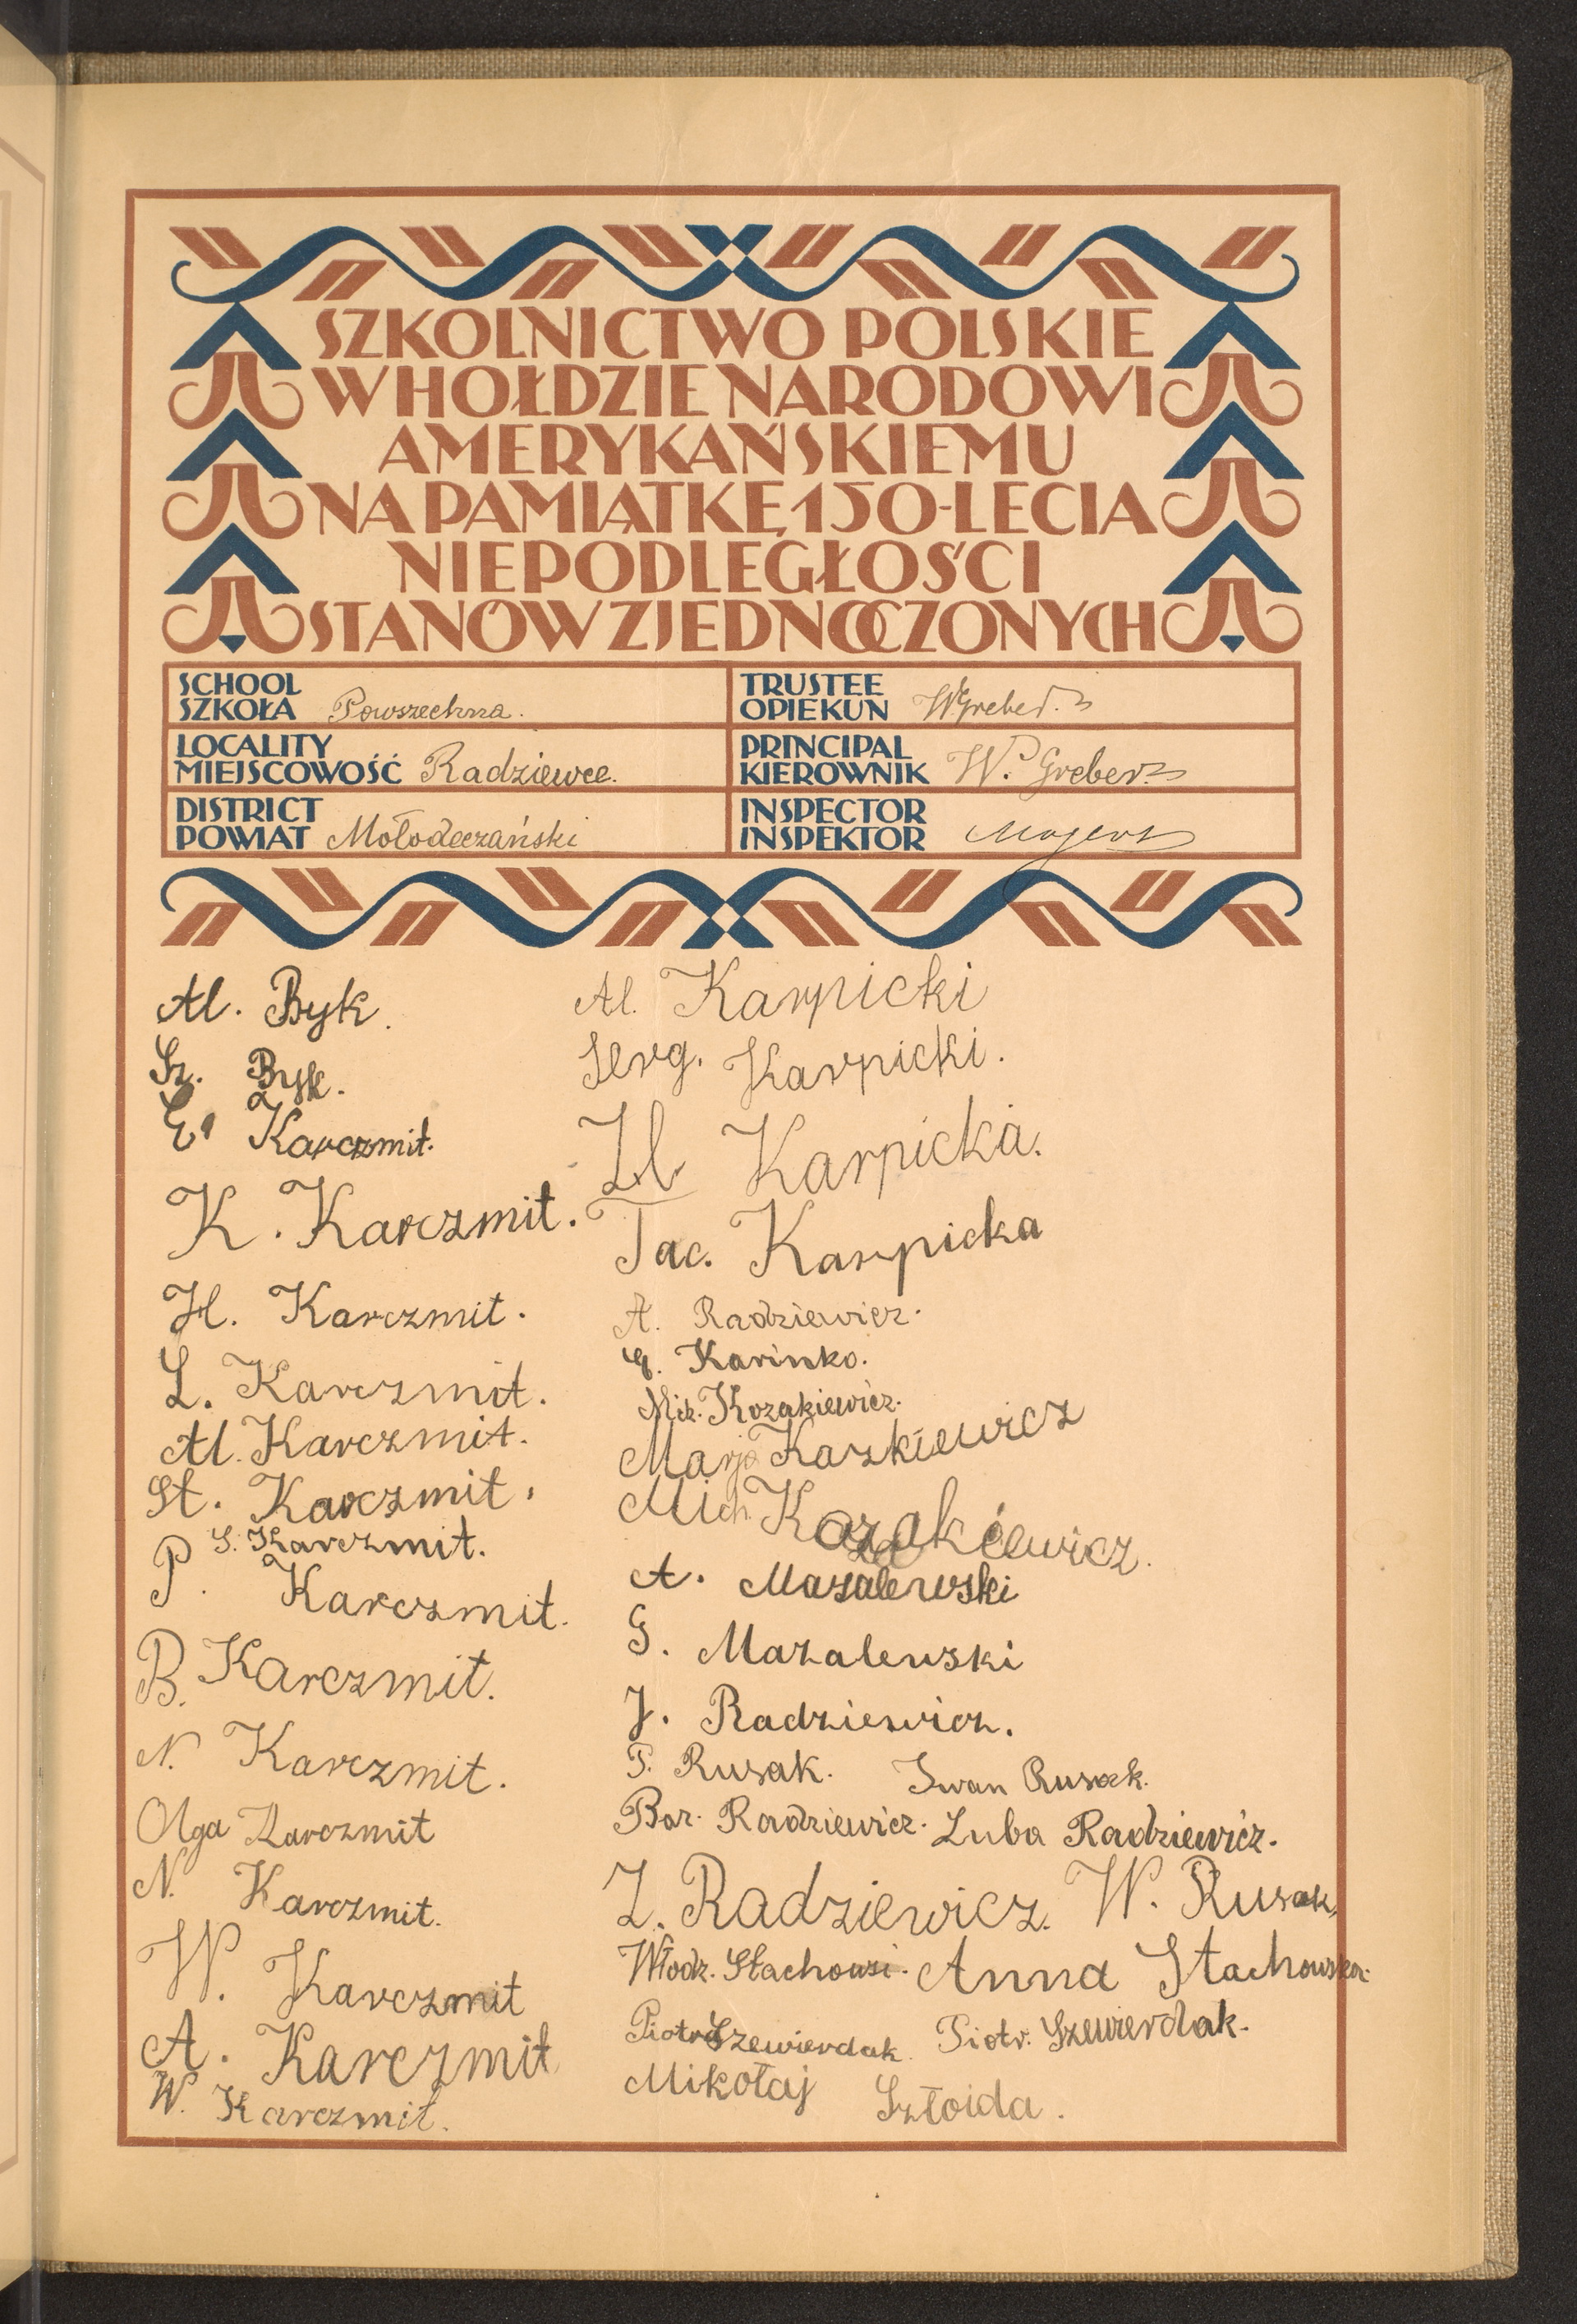 SZKOLNICTWO POLSKIE
W HOŁDZIE NARODOWI
AMERYKAŃSKIEMU
NA PAMIĄTKĘ 150-LECIA
NIEPODLEGŁOŚCI
STANÓW ZJEDNOCZONYCH
SCHOOL
SZKOŁA Powszechna.
TRUSTEE
OPIEKUN W. Greber.
LOCALITY
MIEJSCOWOŚĆ Radziewce.
PRINCIPAL
KIEROWNIK W. Greber.
DISTRICT
POWIAT Mołodeczański
INSPECTOR
INSPEKTOR
Al. Byk.
Sz. Byk.
E. Karczmit.
K. Karczmit.
H. Karczmit.
L. Karczmit.
Al. Karczmit.
St. Karczmit.
S. Karczmit.
P. Karczmit.
B. Karczmit.
N. Karczmit.
Olga Karczmit
N. Karczmit.
W. Karczmit
A. Karczmit
W. Karczmit.
Al. Karpicki
Serg. Karpicki.
Karpicka.
Tac. Karpicka
A. Radziewicz.
Karinko.
Mik. Kozakiewicz.
Marja Kazkiewicz
Mich. Kozakiewicz.
A. Mazalewski
G. Mazalewski
J. Radziewicz.
T. Rusak. Iwan Rusak.
Bar. Radziewicz. Luba Radziewicz.
Z. Radziewicz. W. Rusak.
Włodz. Stachowsi. Anna Stachowska.
Piotr Szewierdak. Piotr. Szewierdak.
Mikołaj Sztoida.